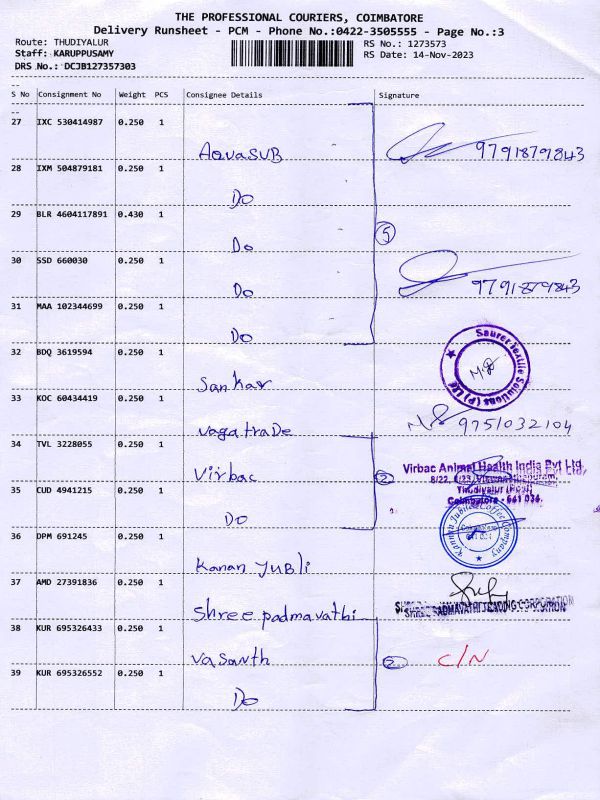 THE PROFESSIONAL COURIERS, COIMBATORE
Delivery Runsheet - PCM - Phone No.:0422-3505555 - Page No.:3
Route: THUDIYALUR
RS No.: 1273573
Staff: KARUPPUSAMY
RS Date: 14-Nov-2023
DRS No.: DCJB127357303
S No Consignment No Weight PCS Consignee Details Signature
27 IXC 530414987 0.250 1
AQuaSUB 9791879843
28 IXM 504879181 0.250 1
Do
29 BLR 4604117891 0.430 1
Do 5
30 SSD 660030 0.250 1
Do 9791879843
31 MAA 102344699 0.250 1
Do
32 BDQ 3619594 0.250 1
Saurer Textile Solutions (P) Ltd
Sankar
33 KOC 60434419 0.250 1
vagatraDe 9751032104
34 TVL 3228055 0.250 1
Virbac 2 Virbac Animal Health India Pvt Ltd,
Thudiyalur (Post)
Coimbatore - 641 034.
35 CUD 4941215 0.250 1
Do
36 DPM 691245 0.250 1
Kannan Jubilee Coffee Company
Kanan Jubli
37 AMD 27391836 0.250 1
Shree padmavathi SHREE PADMAVATHI TRADING CORPORATION
38 KUR 695326433 0.250 1
Vasanth 2 C/N
39 KUR 695326552 0.250 1
Do